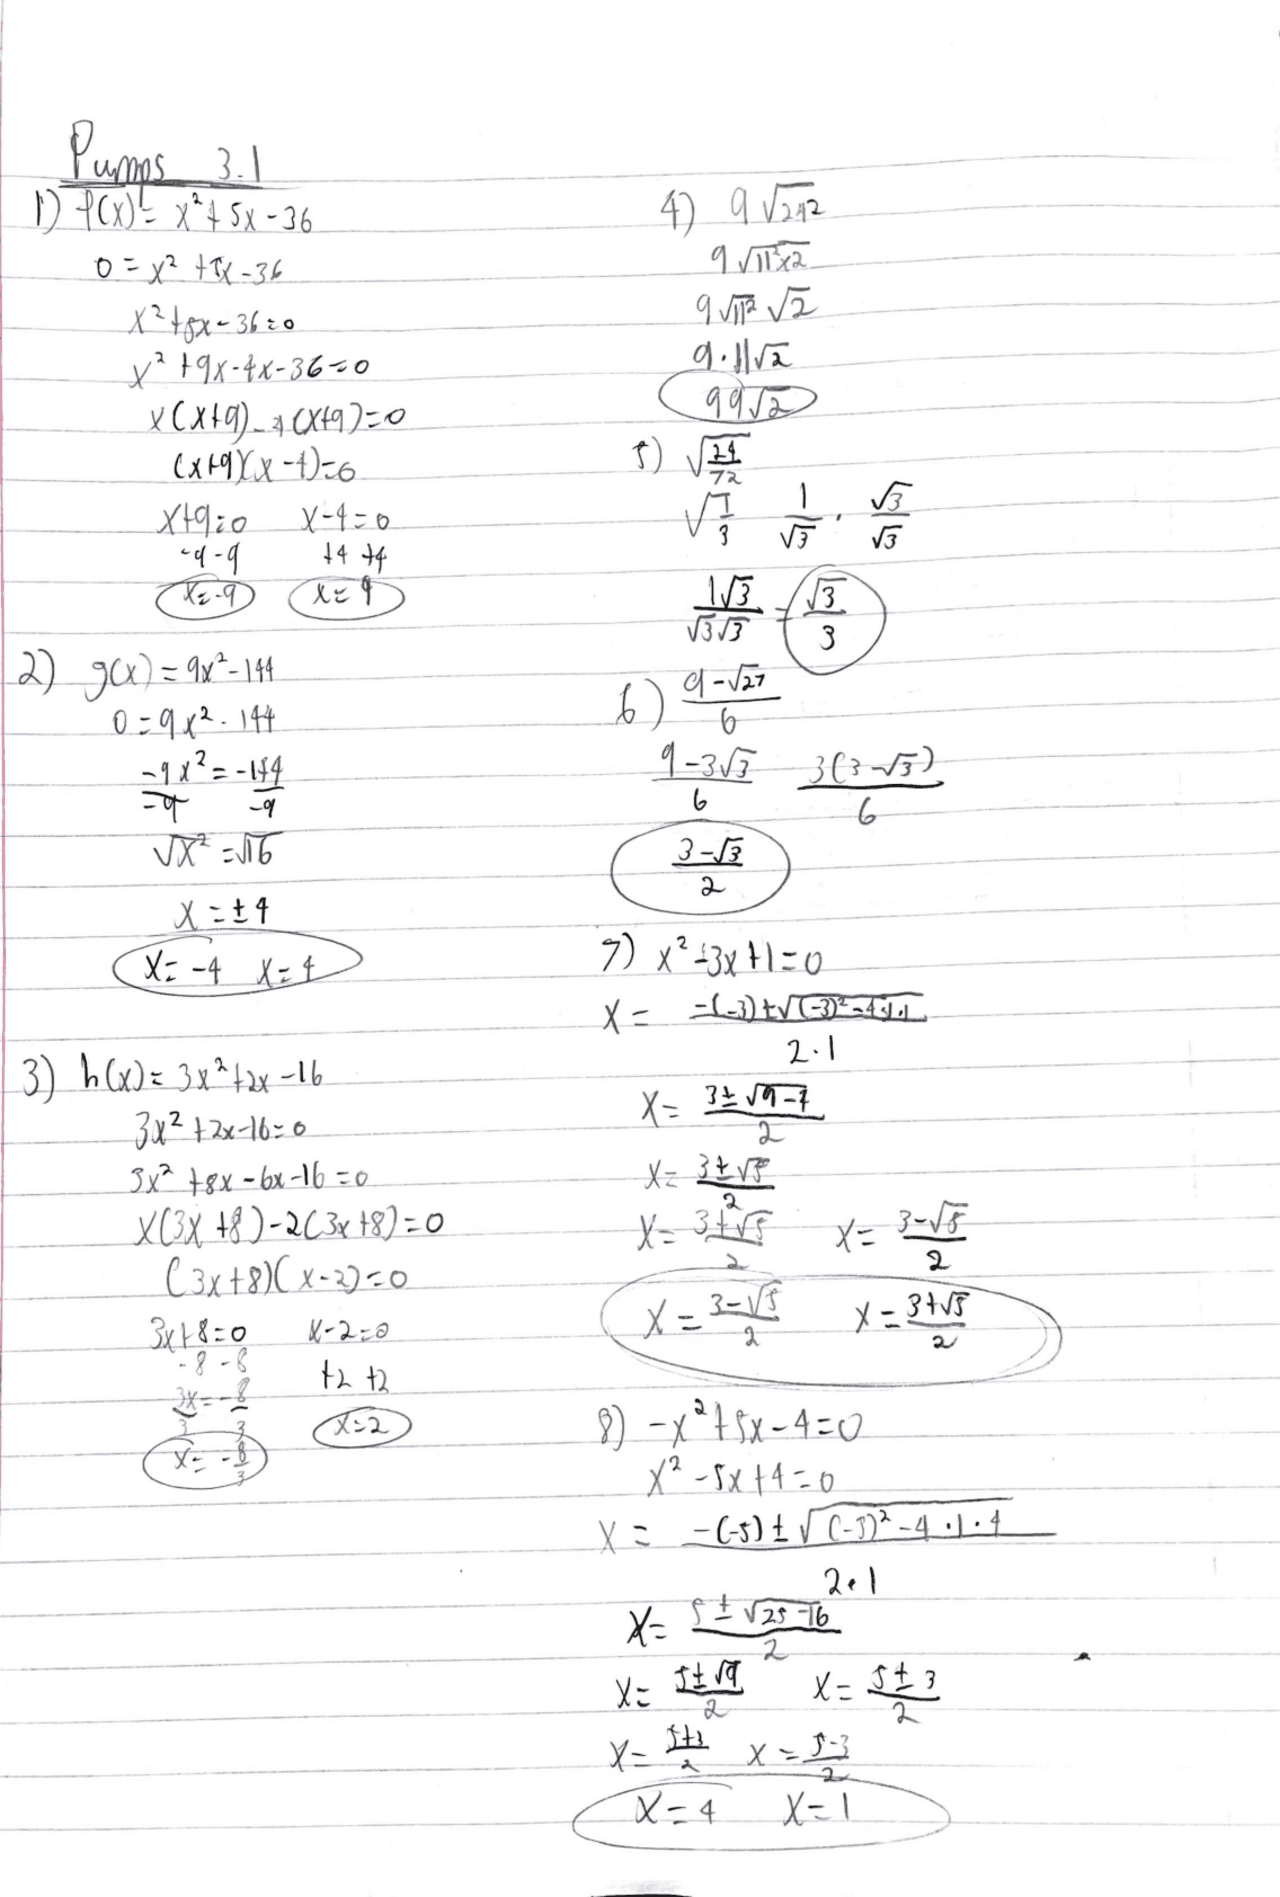 Pumps 3.1
1) f(x) = x² + 5x - 36
0 = x² + 5x - 36
x² + 5x - 36 = 0
x² + 9x - 4x - 36 = 0
x(x+9) - 4(x+9) = 0
(x+9)(x-4) = 0
x+9=0 x-4=0
-9 -9 +4 +4
x=-9 x=4
2) g(x) = 9x² - 144
0 = 9x² - 144
-9x² = -144
-9 -9
√x² = √16
x = ±4
x = -4 x = 4
3) h(x) = 3x² + 2x - 16
3x² + 2x - 16 = 0
3x² + 8x - 6x - 16 = 0
x(3x+8) - 2(3x+8) = 0
(3x+8)(x-2) = 0
3x+8=0 x-2=0
-8 -8 +2 +2
3x = -8
3 3
x = -8/3 x=2
4) 9√242
9√11²x2
9√11² √2
9·11√2
99√2
5) √24/72
√1/3 1/√3 · √3/√3
1√3/√3√3 = √3/3
6) 9-√27/6
9-3√3/6 3(3-√3)/6
3-√3/2
7) x² - 3x + 1 = 0
x = -(-3) ± √(-3)² - 4·1·1
2·1
x = 3±√9-4/2
x = 3±√5/2
x = 3+√5/2 x = 3-√5/2
x = 3-√5/2 x = 3+√5/2
8) -x² + 5x - 4 = 0
x² - 5x + 4 = 0
x = -(-5) ± √(-5)² - 4·1·4
2·1
x = 5±√25-16/2
x = 5±√9/2 x = 5±3/2
x = 5+3/2 x = 5-3/2
x = 4 x = 1